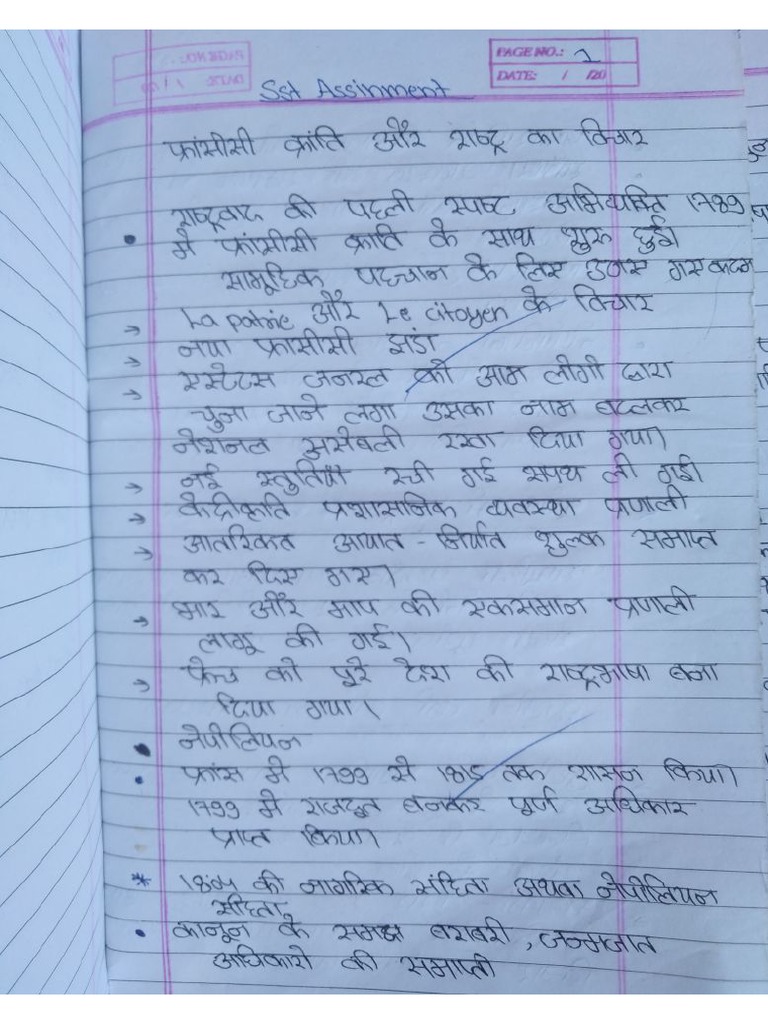 PAGE NO.: 1
DATE: / /20
Sst Assinment
फ्रांसीसी क्रांति और राष्ट्र का विचार
राष्ट्रवाद की पहली स्पष्ट अभिव्यक्ति 1789
• मे फ्रांसीसी क्राति के साथ शुरु हुई।
सामूहिक पहचान के लिए उठाए गए कदम
→ La patrie और Le citoyen के विचार
→ नया फ्रांसीसी झंडा
→ एस्टेटस जनरल को आम लोगो द्वारा
चुना जाने लगा उसका नाम बदलकर
नेशनल असेंबली रखा दिया गया।
→ नई स्तुतियाँ रची गई शपथ ली गई।
→ केंद्रीकृति प्रशासनिक व्यवस्था प्रणाली
→ आतरिकत आयात - निर्यात शुल्क समाप्त
कर दिए गए।
→ भार और माप की एकसमान प्रणाली
लागू की गई।
→ फ्रेन्च को पूरे देश की राष्ट्रभाषा बना
दिया गया।
• नेपोलियन
• फ्रांस मे 1799 से 1815 तक शासन किया।
1799 मे राजदूत बनकर पूर्ण अधिकार
प्राप्त किया।
* 1804 की नागरिक संहिता अथवा नेपोलियन
संहिता
• कानून के समक्ष बराबरी, जन्मजात
अधिकारो की समाप्ती